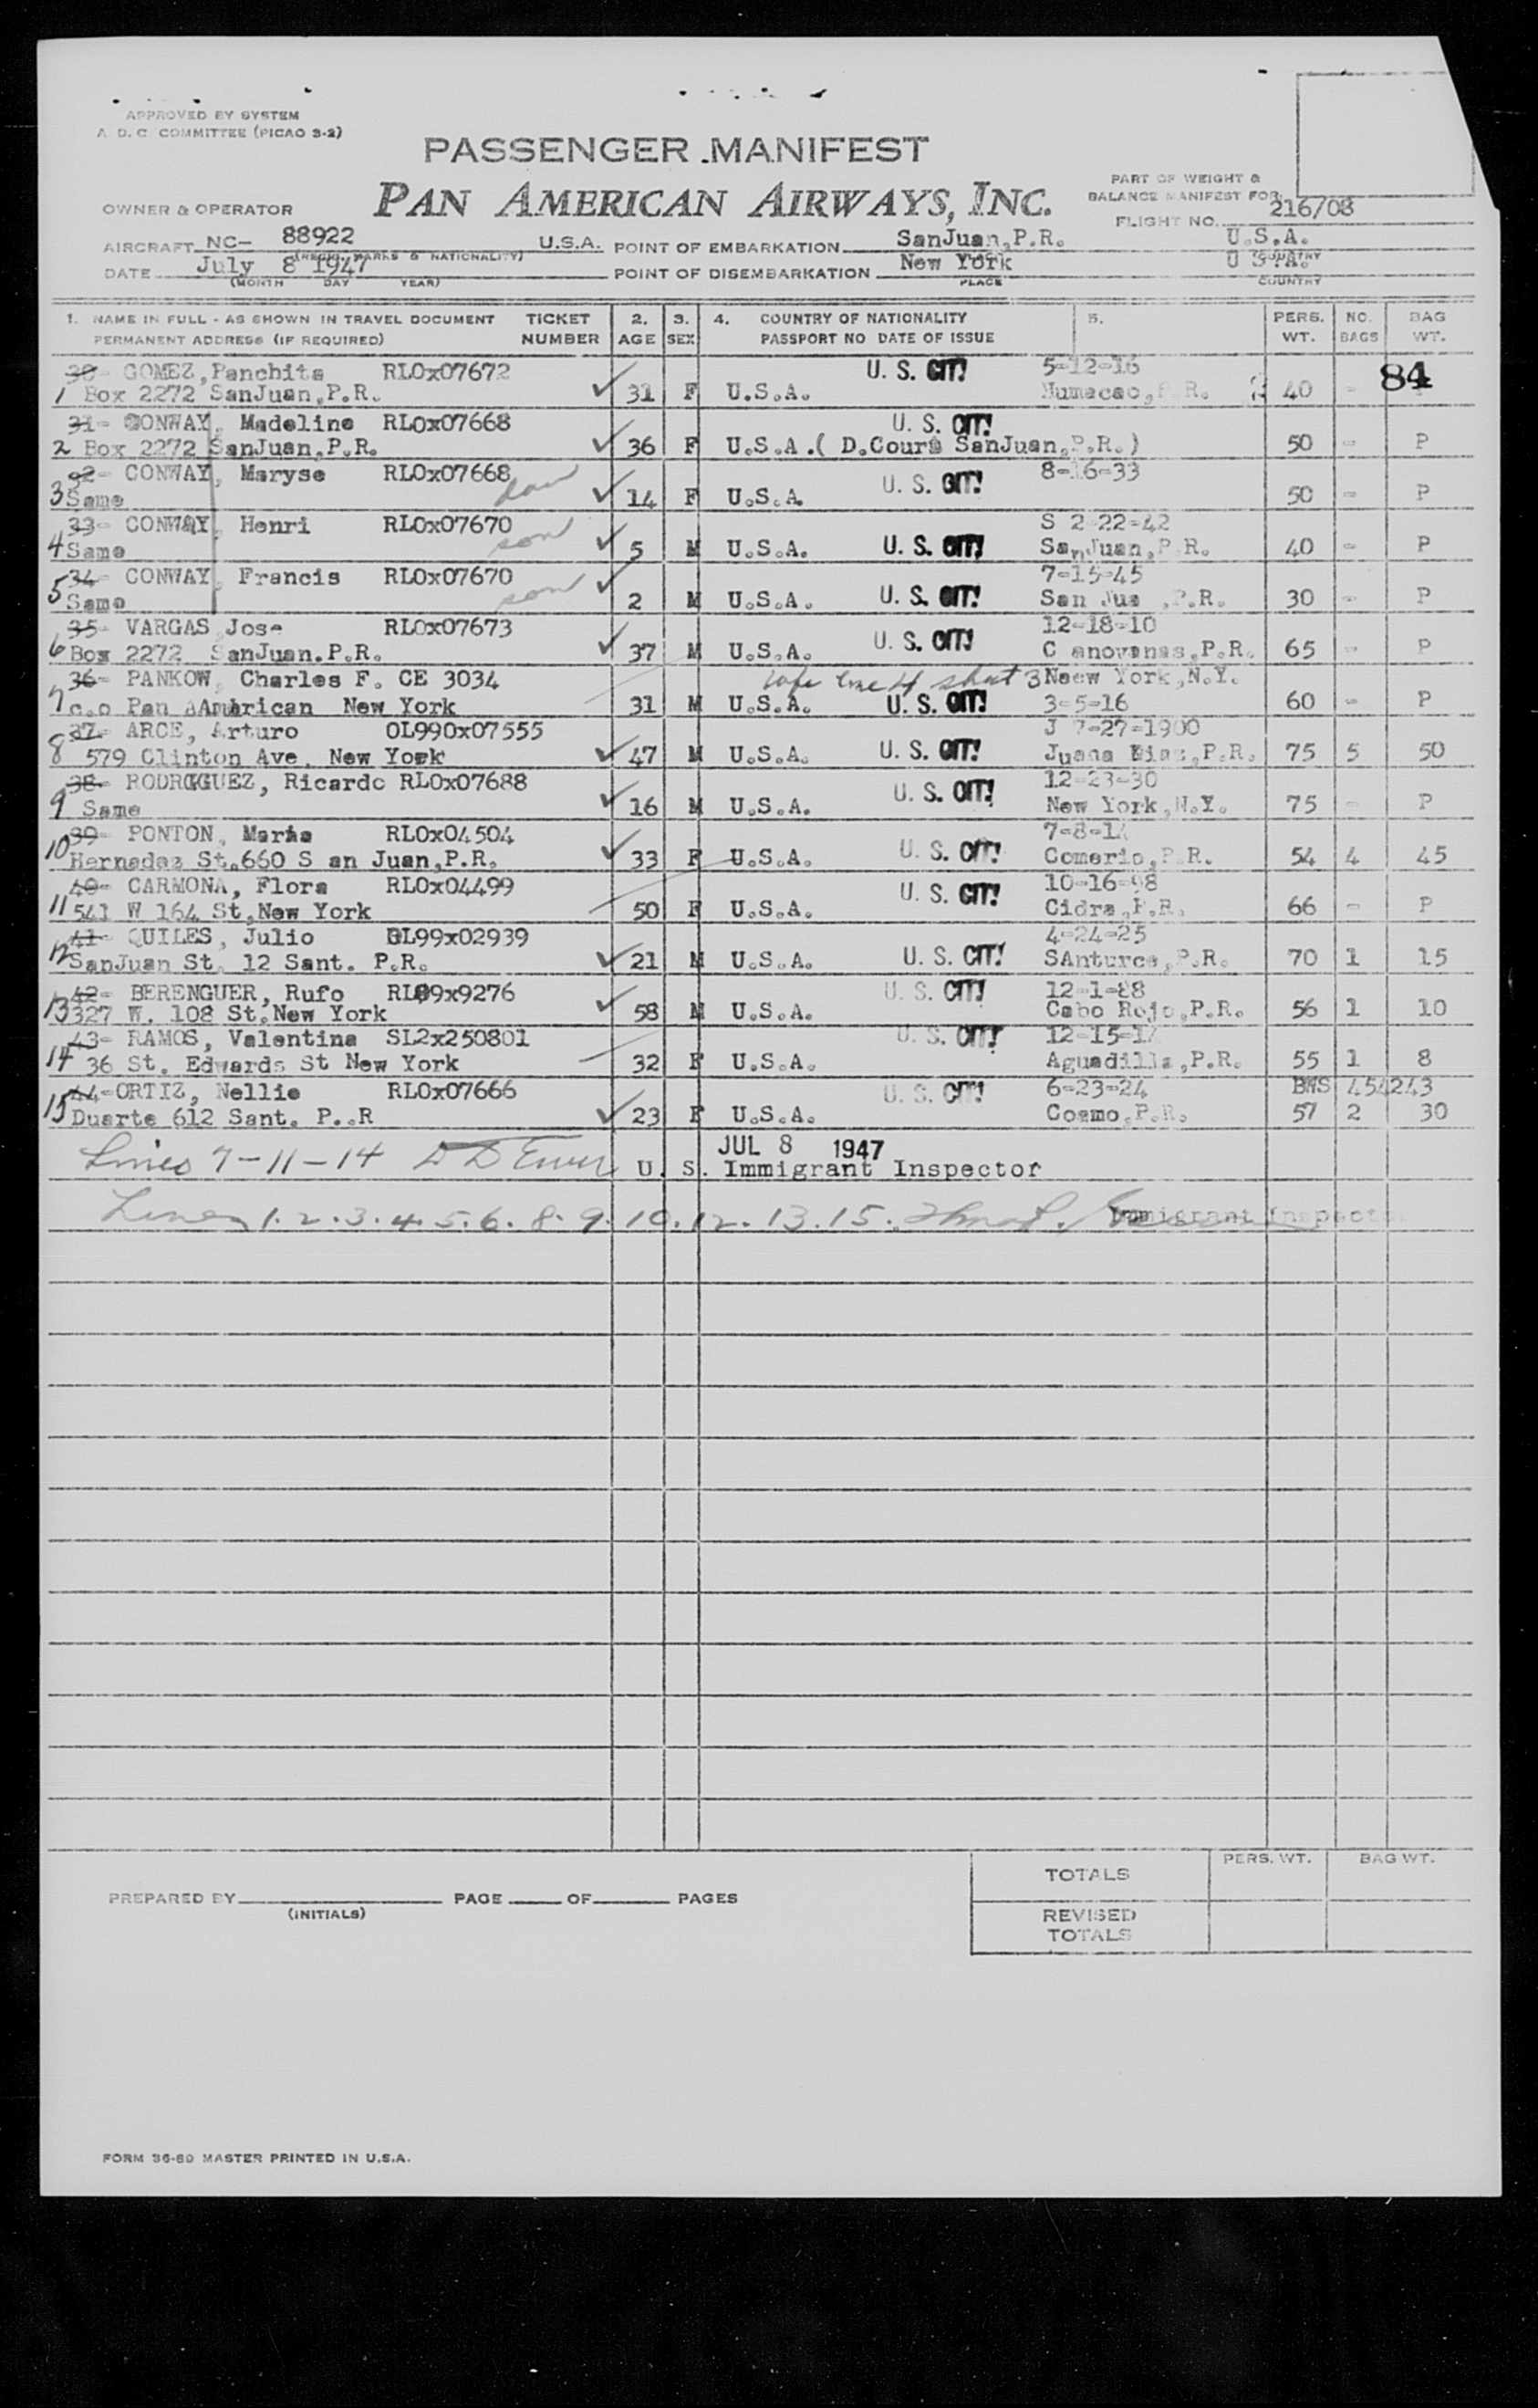 APPROVED BY SYSTEM
A. D. C. COMMITTEE (PICAO 3-2)
PASSENGER MANIFEST
PAN AMERICAN AIRWAYS, INC.
PART OF WEIGHT &
BALANCE MANIFEST FOR
FLIGHT NO. 216/08
OWNER & OPERATOR
AIRCRAFT NC- 88922 U.S.A. POINT OF EMBARKATION SanJuan,P.R. U.S.A.
(REGIS. MARKS & NATIONALITY) COUNTRY
DATE July 8 1947 POINT OF DISEMBARKATION New York U S.A.
(MONTH DAY YEAR) PLACE COUNTRY
1. NAME IN FULL - AS SHOWN IN TRAVEL DOCUMENT TICKET 2. 3. 4. COUNTRY OF NATIONALITY 5. PERS. NO. BAG
PERMANENT ADDRESS (IF REQUIRED) NUMBER AGE SEX PASSPORT NO DATE OF ISSUE WT. BAGS WT.
30- GOMEZ,Panchita RLOx07672 U. S. CIT! 5-12-16 84
1 Box 2272 SanJuan,P.R. 31 F U.S.A. Humacao,P.R. 40 -
31- CONWAY, Madeline RLOx07668 U. S. CIT!
2 Box 2272 SanJuan,P.R. 36 F U.S.A.( D.Cours SanJuan,P.R.) 50 - P
32- CONWAY, Maryse RLOx07668 dau U. S. CIT! 8-16-33
3 Same 14 F U.S.A. 50 - P
33- CONWAY, Henri RLOx07670 son S 2-22-42
4 Same 5 M U.S.A. U. S. CIT! San Juan,P.R. 40 - P
34- CONWAY, Francis RLOx07670 son 7-15-45
5 Same 2 M U.S.A. U. S. CIT! San Jua ,P.R. 30 - P
35- VARGAS Jose RLOx07673 12-18-10
6 Box 2272 SanJuan.P.R. 37 M U.S.A. U. S. CIT! C anovanas,P.R. 65 - P
36- PANKOW, Charles F. CE 3034 wife line 4 sheet 3 Neew York,N.Y.
7 c.o Pan AAmerican New York 31 M U.S.A. U. S. CIT! 3-5-16 60 - P
37- ARCE, Arturo OL990x07555 J 7-27-1900
8 579 Clinton Ave. New York 47 M U.S.A. U. S. CIT! Juana Diaz,P.R. 75 5 50
38- RODRGGUEZ, Ricardo RLOx07688 U. S. CIT! 12-23-30
9 Same 16 M U.S.A. New York,N.Y. 75 - P
39- PONTON, Maria RLOx04504 7-8-14
10 Hernadez St.660 S an Juan,P.R. 33 F U.S.A. U. S. CIT! Comerio,P.R. 54 4 45
40- CARMONA, Flora RLOx04499 U. S. CIT! 10-16-98
11 541 W 164 St,New York 50 F U.S.A. Cidra,P.R. 66 - P
41- QUILES, Julio OL99x02939 4-24-25
12 SanJuan St. 12 Sant. P.R. 21 M U.S.A. U. S. CIT! SAnturce,P.R. 70 1 15
42- BERENGUER, Rufo RL99x9276 U. S. CIT! 12-1-88
13 327 W. 108 St.New York 58 M U.S.A. Cabo Rojo,P.R. 56 1 10
43- RAMOS, Valentina SL2x250801 U. S. CIT! 12-15-14
14 36 St. Edwards St New York 32 F U.S.A. Aguadilla,P.R. 55 1 8
44-ORTIZ, Nellie RLOx07666 U. S. CIT! 6-23-24 BWS 454243
15 Duarte 612 Sant. P..R 23 F U.S.A. Coamo,P.R. 57 2 30
JUL 8 1947
Lines 7-11-14 U. S. Immigrant Inspector
Lines 1.2.3.4.5.6.8.9.10.12.13.15. Immigrant Inspector
PERS. WT. BAG WT.
TOTALS
PREPARED BY PAGE OF PAGES
(INITIALS)
REVISED
TOTALS
FORM 36-80 MASTER PRINTED IN U.S.A.